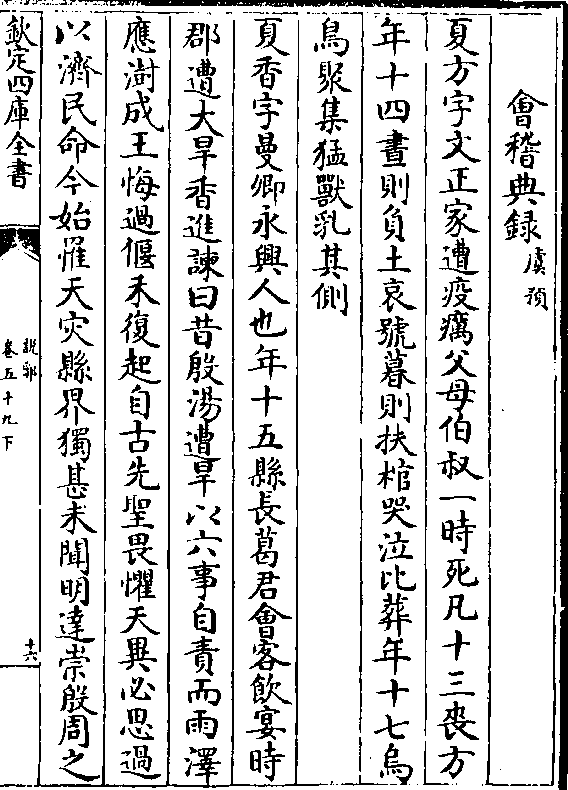 會稽典録虞預
夏方字文正家遭疫癘父母伯叔一時死凡十三喪方
年十四晝則負土哀號暮則扶棺哭泣比葬年十七烏
鳥聚集猛獸乳其側
夏香字曼卿永興人也年十五縣長葛君會客飲宴時
郡遭大旱香進諫曰昔殷湯遭旱以六事自責而雨澤
應澍成王悔過偃禾復起自古先聖畏懼天異必思過
以濟民命今始罹天灾縣界獨甚未聞明達崇殷周之
欽定四庫全書
説郛
卷五十九下
十六